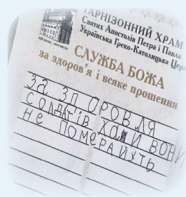 ГАРНІЗОННИЙ ХРАМ
Святих Апостолів Петра і Павла
Українська Греко-Католицька Церк
СЛУЖБА БОЖА
за здоров'я і всяке прошення
ЗА ЗДОРОВЛЯ
СОЛДАТІВ ХОЧ ВОНИ
НЕ ПОМЕРАЙУТЬ